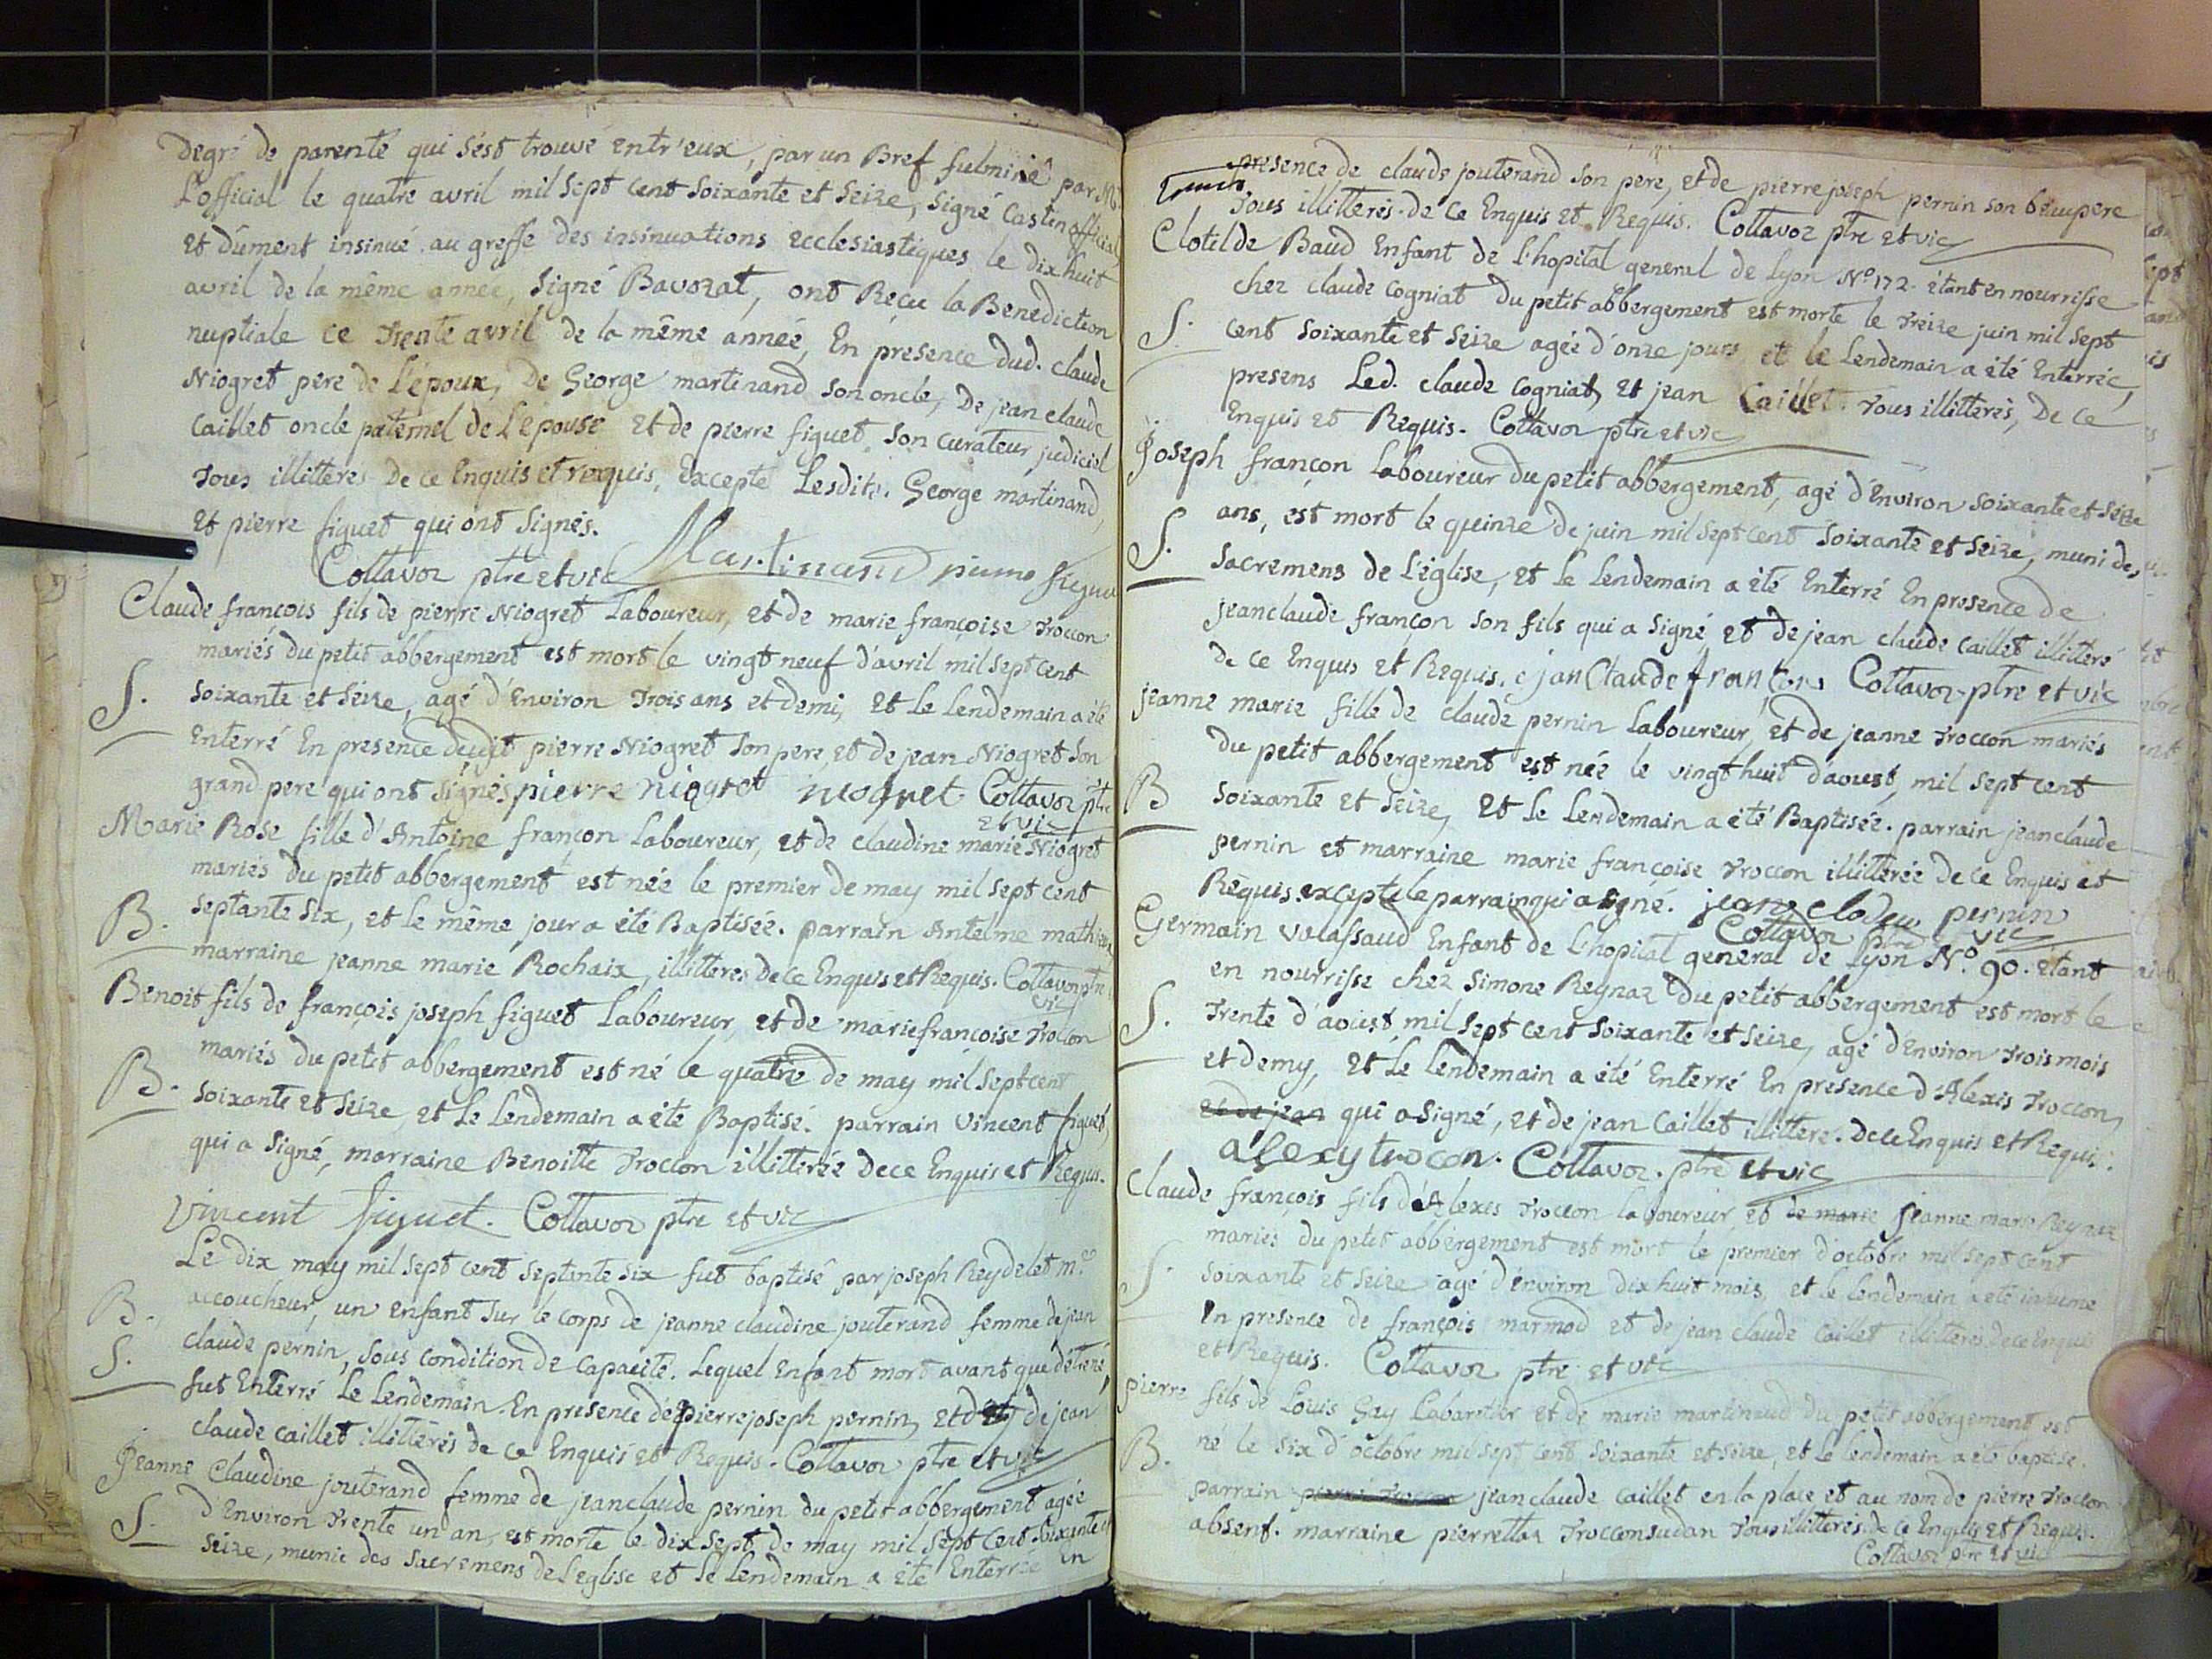 degré de parenté qui s'est trouvé entr'eux, par un Bref fulminé par Mr
L'official le quatre avril mil sept cent soixante et seize, signé Castin official
et dûment insinué au greffe des insinuations ecclesiastiques le dix huit
avril de la même année, signé Bavozat, ont Reçu la Benediction
nuptiale ce trente avril de la même année, En présence dud. claude
Niogret pere de l'époux, De George martinand son oncle, De jean claude
Caillet oncle paternel de L'épouse et de pierre figuet son curateur judiciel
tous illitteres De ce Enquis et requis, Excepté Lesdits. George martinand,
et pierre figuet qui ont signés.
Collavoz ptre et vic Martinand figuet
Claude françois fils de pierre Niogret Laboureur, et de marie françoise troccon
mariés du petit abbergement est mort le vingt neuf d'avril mil sept cent
S. soixante et seize, agé d'Environ trois ans et demi, et Le Lendemain a été
Enterré En presence dudit pierre Niogret son pere, et de jean Niogret son
grand pere qui ont signés pierre niogret niogret Collavoz ptre
et vic
Marie Rose fille d'Antoine françon Laboureur, et de claudine marie Niogret
mariés du petit abbergement est née le premier de may mil sept cent
B. septante six, et le même jour a été Baptisée. parrain Antelme mathieu
marraine jeanne marie Rochaix, illitteres de ce Enquis et Requis. Collavoz ptre
vic
Benoit fils de françois joseph figuet Laboureur, et de marie françoise Trocon
mariés du petit abbergement est né le quatre de may mil sept cent
B. soixante et seize, et Le Lendemain a été Baptisé. parrain vincent figuet,
qui a signé, marraine Benoitte troccon illitterée de ce Enquis et Requis.
Vincent figuet. Collavoz ptre et vic
Le dix may mil sept cent septante six fut baptisé par joseph Reydelet me
B. accoucheur, un enfant sur le corps de jeanne claudine jouterand femme de jean
S. claude pernin, sous condition de capacité. Lequel Enfant mort avant que d'être né,
fut Enterré Le Lendemain. En presence de pierre joseph pernin, et de jean
claude caillet illitterés de ce Enquis et Requis. Collavoz ptre et vic
Jeanne Claudine jouterand femme de jean claude pernin du petit abbergement agée
S. d'Environ trente un an, est morte le dix sept de may mil sept cent soixante et
seize, munie des sacremens de l'eglise et le Lendemain a été Enterrée En
presence de claude jouterand son pere, et de pierre joseph pernin son beaupere
tous illitterés. de ce Enquis et Requis. Collavoz ptre et vic
Clotilde Baud Enfant de L'hopital general de Lyon No 172. étant en nourrisse
chez claude Cogniat du petit abbergement est morte le treize juin mil sept
S. cent soixante et seize agée d'onze jours et le Lendemain a été Enterrée,
presens Led. claude Cogniat, et jean Caillet. tous illitterés, De ce
Enquis et Requis. Collavoz ptre et vic
Joseph françon Laboureur du petit abbergement, agé d'Environ soixante et seize
ans, est mort le quinze de juin mil sept cent soixante et seize, muni des
S. sacremens de L'église, et le Lendemain a été Enterré En presence de
jean claude françon son fils qui a signé, et de jean claude caillet illitteré
de ce Enquis et Requis. jan Claude françon Collavoz ptre et vic
jeanne marie fille de claude pernin Laboureur, et de jeanne troccon mariés
du petit abbergement est née le vingt huit d'aoust, mil sept cent
B soixante et seize, et Le Lendemain a été Baptisée. parrain jean claude
pernin et marraine marie françoise troccon illitterée de ce Enquis et
Requis. excepté le parrain qui a signé. jean clode pernin
Collavoz ptre vic
Germain valassaud Enfant de L'hopital general de Lyon No. 90. étant
en nourrisse chez simone Reynaz du petit abbergement est mort le
S. trente d'aoust mil sept cent soixante et seize, agé d'Environ trois mois
et demy, et Le lendemain a été Enterré En presence d'Alexis troccon,
et de jean qui a signé, et de jean Caillet illitteré. de ce Enquis et Requis.
alexy trocon. Collavoz. ptre et vic
Claude françois fils d'Alexis troccon laboureur, et de marie jeanne marie Reynaz
mariés du petit abbergement est mort le premier d'octobre mil sept cent
S. soixante et seize agé d'environ dix huit mois, et le lendemain a été inhumé
En presence de françois marmod et de jean claude caillet illitteres de ce Enquis
et Requis. Collavoz ptre et vic
pierre fils de Louis Gay Cabarttier et de marie martinand du petit abbergement est
B. né le six d'octobre mil sept cent soixante et seize, et le lendemain a été baptisé.
parrain pierre troccon jean claude caillet en la place et au nom de pierre troccon
absent. marraine pierrette troccon tous illitterés de ce Enquis et Requis.
Collavoz ptre et vic